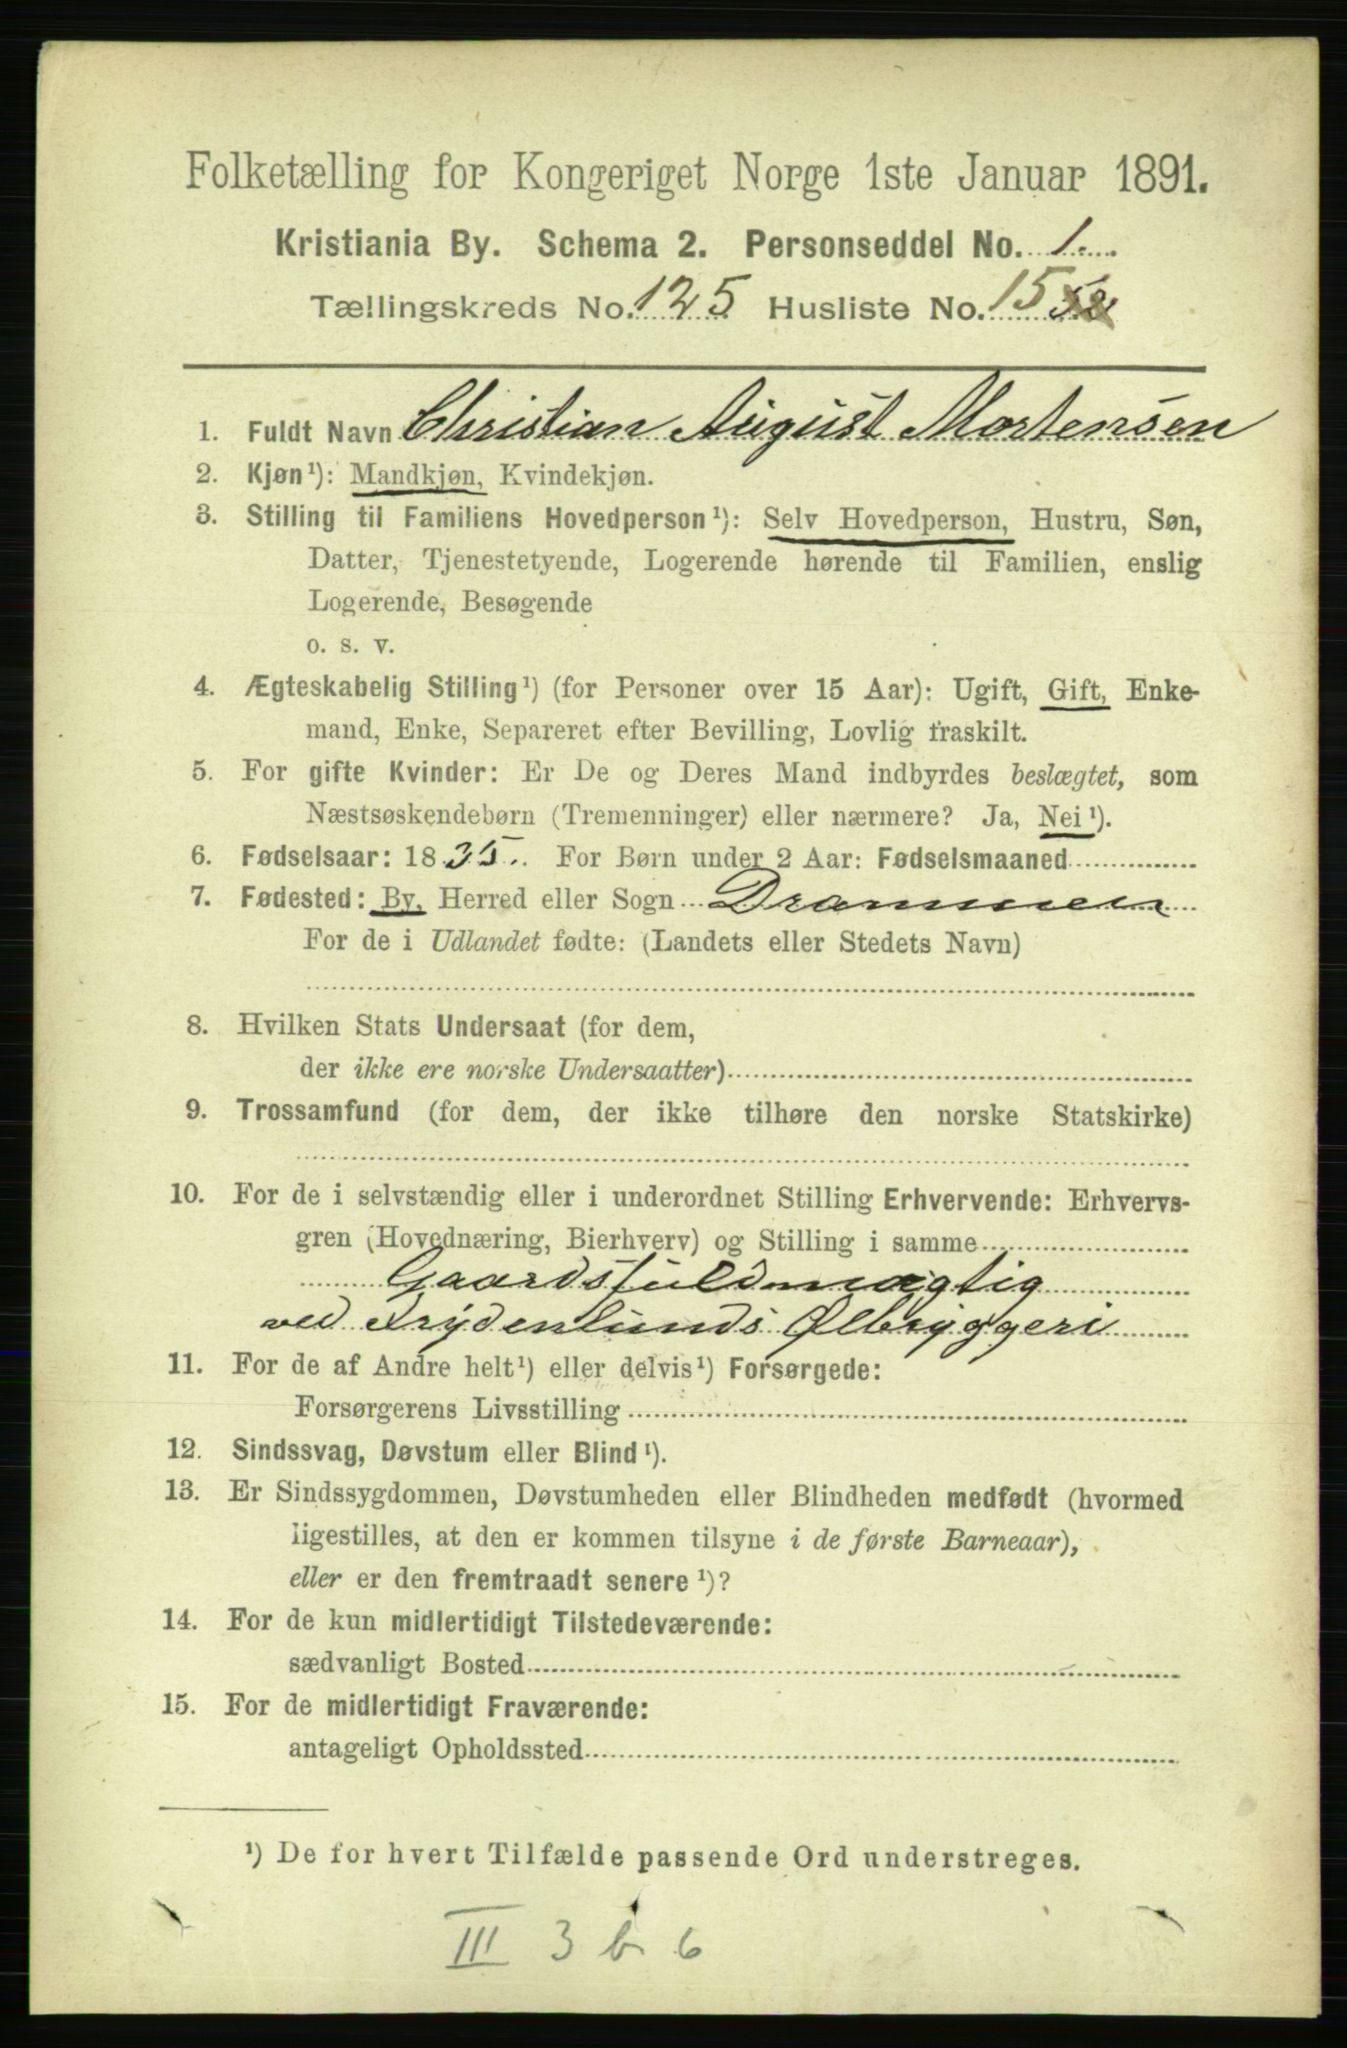 Folketælling for Kongeriget Norge 1ste Januar 1891.
Kristiania By. Schema 2. Personseddel No. 1.
Tællingskreds No. 125 Husliste No. 15
1. Fuldt Navn Christian August Mortensen
2. Kjøn¹): Mandkjøn, Kvindekjøn.
3. Stilling til Familiens Hovedperson¹): Selv Hovedperson, Hustru, Søn,
Datter, Tjenestetyende, Logerende hørende til Familien, enslig
Logerende, Besøgende
o. s. v.
4. Ægteskabelig Stilling¹) (for Personer over 15 Aar): Ugift, Gift, Enke-
mand, Enke, Separeret efter Bevilling, Lovlig fraskilt.
5. For gifte Kvinder: Er De og Deres Mand indbyrdes beslægtet, som
Næstsøskendebørn (Tremenninger) eller nærmere? Ja, Nei¹).
6. Fødselsaar: 1835. For Børn under 2 Aar: Fødselsmaaned
7. Fødested: By, Herred eller Sogn Drammen
For de i Udlandet fødte: (Landets eller Stedets Navn)
8. Hvilken Stats Undersaat (for dem,
der ikke ere norske Undersaatter)
9. Trossamfund (for dem, der ikke tilhøre den norske Statskirke)
10. For de i selvstændig eller i underordnet Stilling Erhvervende: Erhvervs-
gren (Hovednæring, Bierhverv) og Stilling i samme
Gaardsfuldmægtig
ved Frydenlunds Ølbryggeri
11. For de af Andre helt¹) eller delvis¹) Forsørgede:
Forsørgerens Livsstilling
12. Sindssvag, Døvstum eller Blind¹).
13. Er Sindssygdommen, Døvstumheden eller Blindheden medfødt (hvormed
ligestilles, at den er kommen tilsyne i de første Barneaar),
eller er den fremtraadt senere¹)?
14. For de kun midlertidigt Tilstedeværende:
sædvanligt Bosted
15. For de midlertidigt Fraværende:
antageligt Opholdssted
¹) De for hvert Tilfælde passende Ord understreges.
III 3 b 6